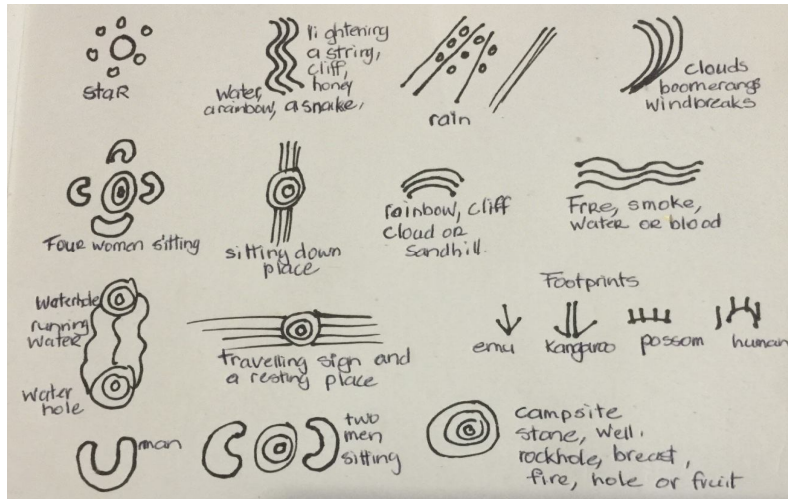 staR
lightening
a string,
cliff,
honey
Water,
a rainbow, a snake,
rain
clouds
boomerangs
windbreaks
Four women sitting
sitting down
place
rainbow, cliff
cloud or
sandhill.
Fire, smoke,
water or blood
Waterhole
running
water
Water
hole
travelling sign and
a resting place
Footprints
emu
Kangaroo
possom
human
man
two
men
sitting
campsite
stone, well.
rockhole, breast,
fire, hole or fruit